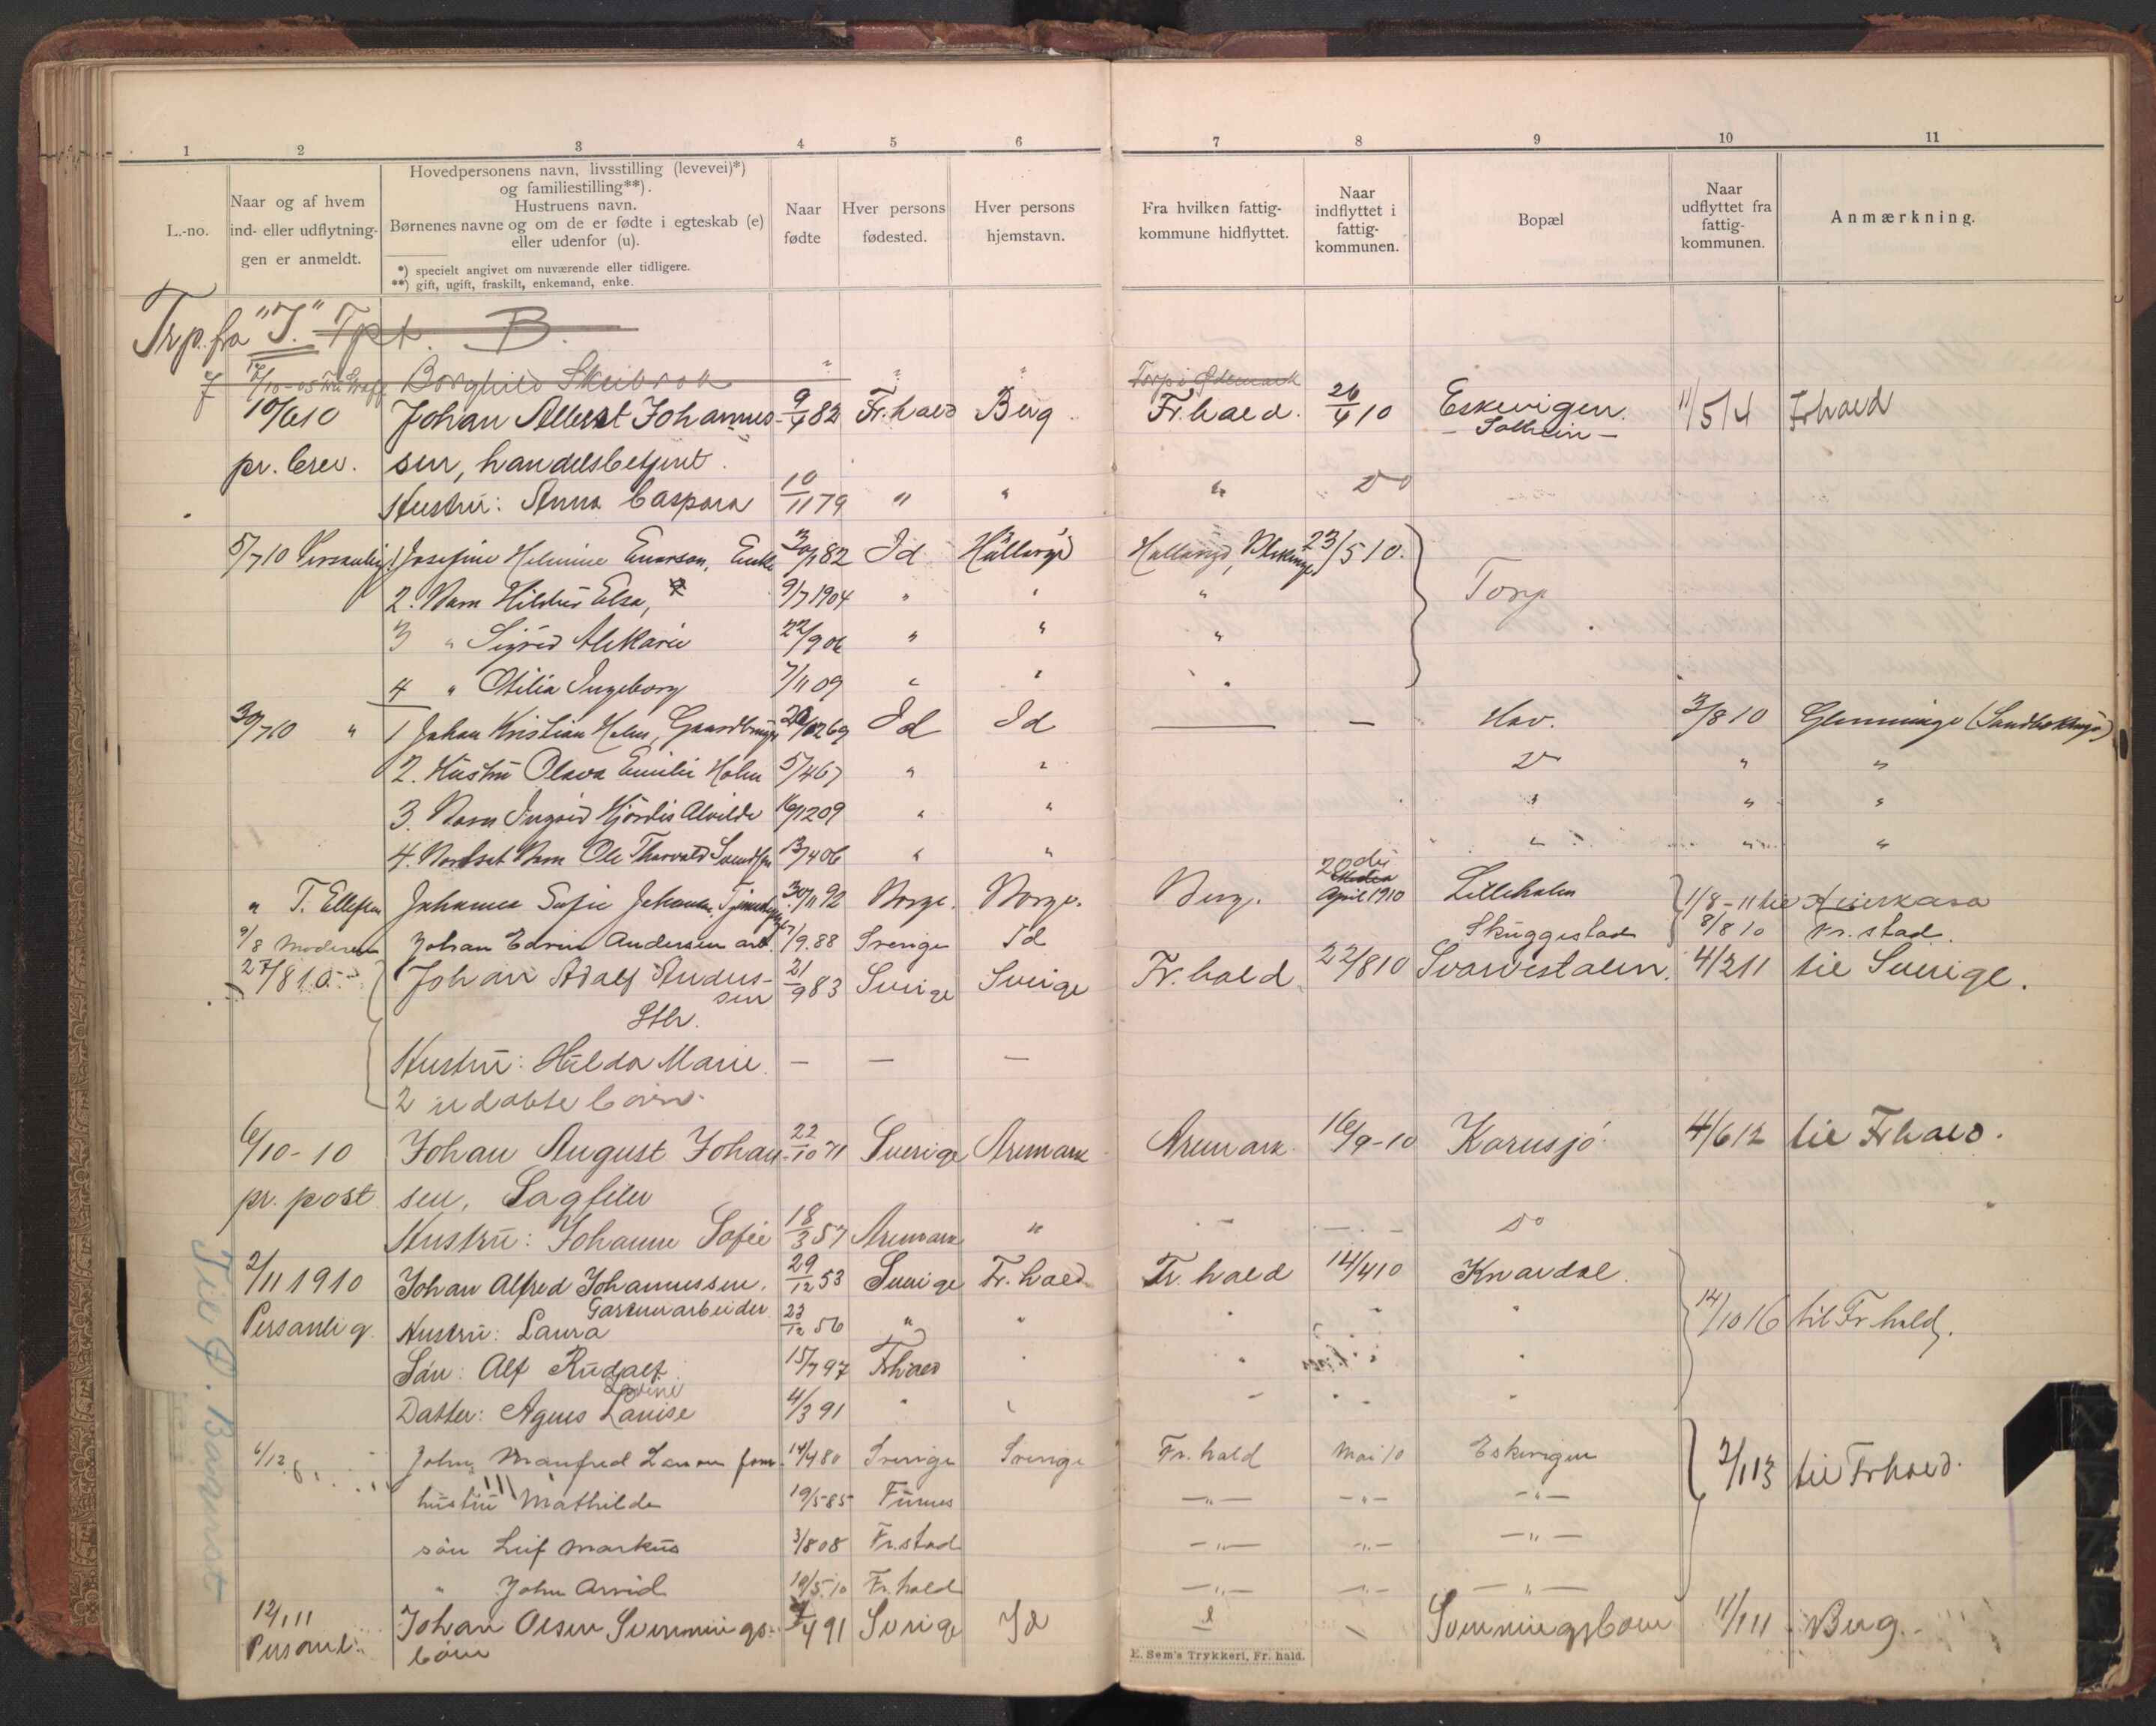 1 2 3 4 5 6 7 8 9 10 11
L.-no.
Naar og af hvem ind- eller udflytningen er anmeldt.
Hovedpersonens navn, livsstilling (levevei)*)
og familiestilling**).
Hustruens navn.
Børnenes navne og om de er fødte i egteskab (e)
eller udenfor (u).
*) specielt angivet om nuværende eller tidligere.
**) gift, ugift, fraskilt, enkemand, enke.
Naar fødte
Hver persons fødested.
Hver persons hjemstavn.
Fra hvilken fattigkommune hidflyttet.
Naar indflyttet i fattigkommunen.
Bopæl
Naar udflyttet fra fattigkommunen.
Anmærkning.
Trp. fra "J." Tpt. B.
Borghild Skibrok " " " Torp i Ødemark
10/610 Johan Albert Johannes- 9/4 82 Fr.hald Berg Fr.hald. 26/4 10 Eskevigen. 11/514 Frhald
- Solheim -
pr. brev. sen, handelsbetjent.
Hustru: Anna Caspara 10/11 79 " " " Do
5/710 Personlig 1. Josefine Helmine Enarson, Enke 30/1 82 Id Hallaryd Hallaryd, Blekinge 23/510. Torp
2. Barn Hildur Elsa, 9/7 1904 " " "
3 " Sigrid Marie 22/9 06 " " "
4 " Otilia Ingeborg 7/11 09 " " "
30/710 " 1 Johan Kristian Holm, Gaardbruger 69 Id Id — — Hov. 3/8 10 Glemminge (Sandbakken)
2. Hustru Olava Emilie Holm 5/4 67 " " Do " "
3. Barn Ingrid Hjördis Alvilde 16/12 09 " " " " "
4. Bortsat Barn Ole Thorvald Svendsen 13/4 06 " " " " "
" T. Ellefsen Johanna Sofie Johansen, Tjenestepige 30/11 92 Norge. Norge. Berg. 20de April 1910 Lilleholm 1/8-11 til
9/8 Moderen Johan Edvin Andersen arb. 7/9.88 Sverige Id Skuggestad 8/8 10 Fr.stad.
27/810. Johan Adolf Andersen 21/9 83 Sverige Sverige Fr.hald 22/810 Svarvestalen. 4/211 til Sverige.
Sthr.
Hustru: Hilda Marie. — — —
2 udøbte børn.
6/10-10 Johan August Johan- 22/10 71 Sverige Aremark Aremark 16/9-10 Kornsjø. 4/612 til Frhald.
pr. post sen, Sagfiler
Hustru: Johanne Sofie 18/3 57 Aremark " - - Do
2/11 1910 Johan Alfred Johannessen. 29/12 53 Sverige Fr.hald Fr.hald 14/410 Knardal. 14/10 16 til Fr.hald.
Garennarbeider
Personlig. Hustru: Laura 23/12 56 " " " " "
Søn: Alf Rudolf 15/7 97 Frhald " " "
Lovine
Datter: Agnes Lovise 4/3 91 " " " "
6/12 John Manfred Larsen 14/4 80 Sverige Sverige Fr.hald Mai 10 Eskevigen 2/1 13 til Frhald.
hustru Mathilde 19/5-85 Furnes —"— —"— —"—
søn Leif Markus 3/8 08 Fr.stad —"— —"— —"—
" John Arvid 19/5 10 Fr.hald —"— —"— —"—
12/111 Johan Olsen Svenningsbøen 4 91 Sverige Id Svenningsbøen 11/111 Berg.
Personl.
Til P. Bakunst
E. Sem's Trykkeri, Fr. hald.